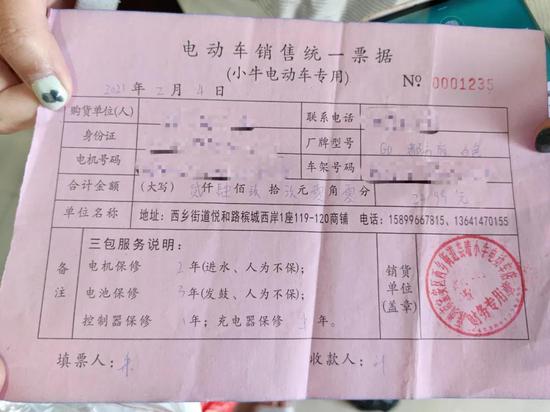 电动车销售统一票据
(小牛电动车专用)
2021年2月4日 №0001235
购货单位(人) 联系电话
身份证 厂牌型号
电机号码 车架号码
合计金额 (大写) 贰仟肆佰玖拾玖元零角零分 2499元
单位名称 地址:西乡街道悦和路槟城西岸1座119-120商铺 电话:15899667815、13641470155
三包服务说明:
备注
电机保修 2年(进水、人为不保);
电池保修 3年(发鼓、人为不保);
控制器保修 1年;充电器保修 1年。
销货单位(盖章)
财务专用章
填票人: 收款人: